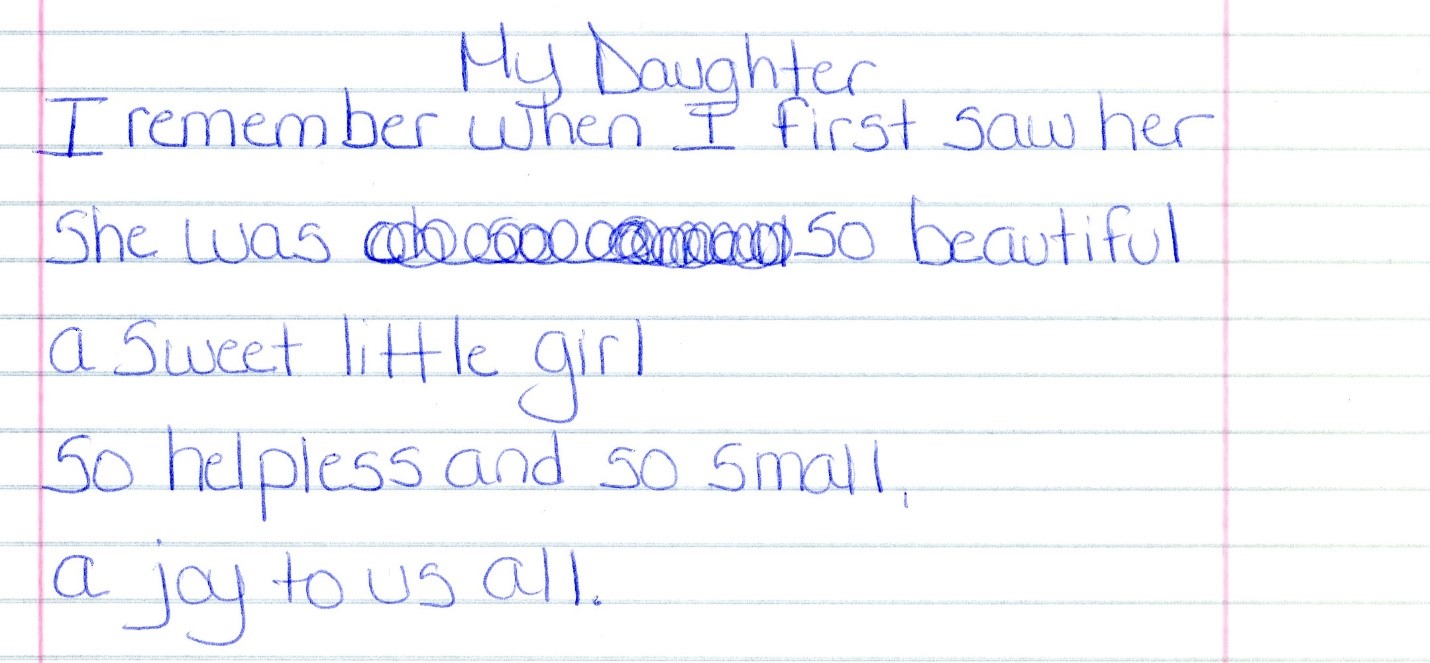 My Daughter
I remember when I first saw her
She was so beautiful
a sweet little girl
So helpless and so small,
a joy to us all.